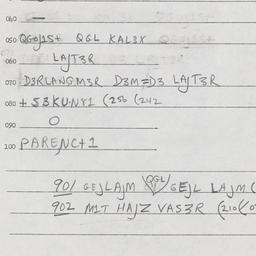 040
050 QGOJ1S+ QGL KAL3X
060 LAJT3R
070 D3RLANGM3R D3M=D3 LAJT3R
080 + S3KUNY1 (256 (242
090 O
100 PARENC+1
901 GEJLAJM QGL GEJL LAJM (
902 M1T HAJZ VAS3R (210